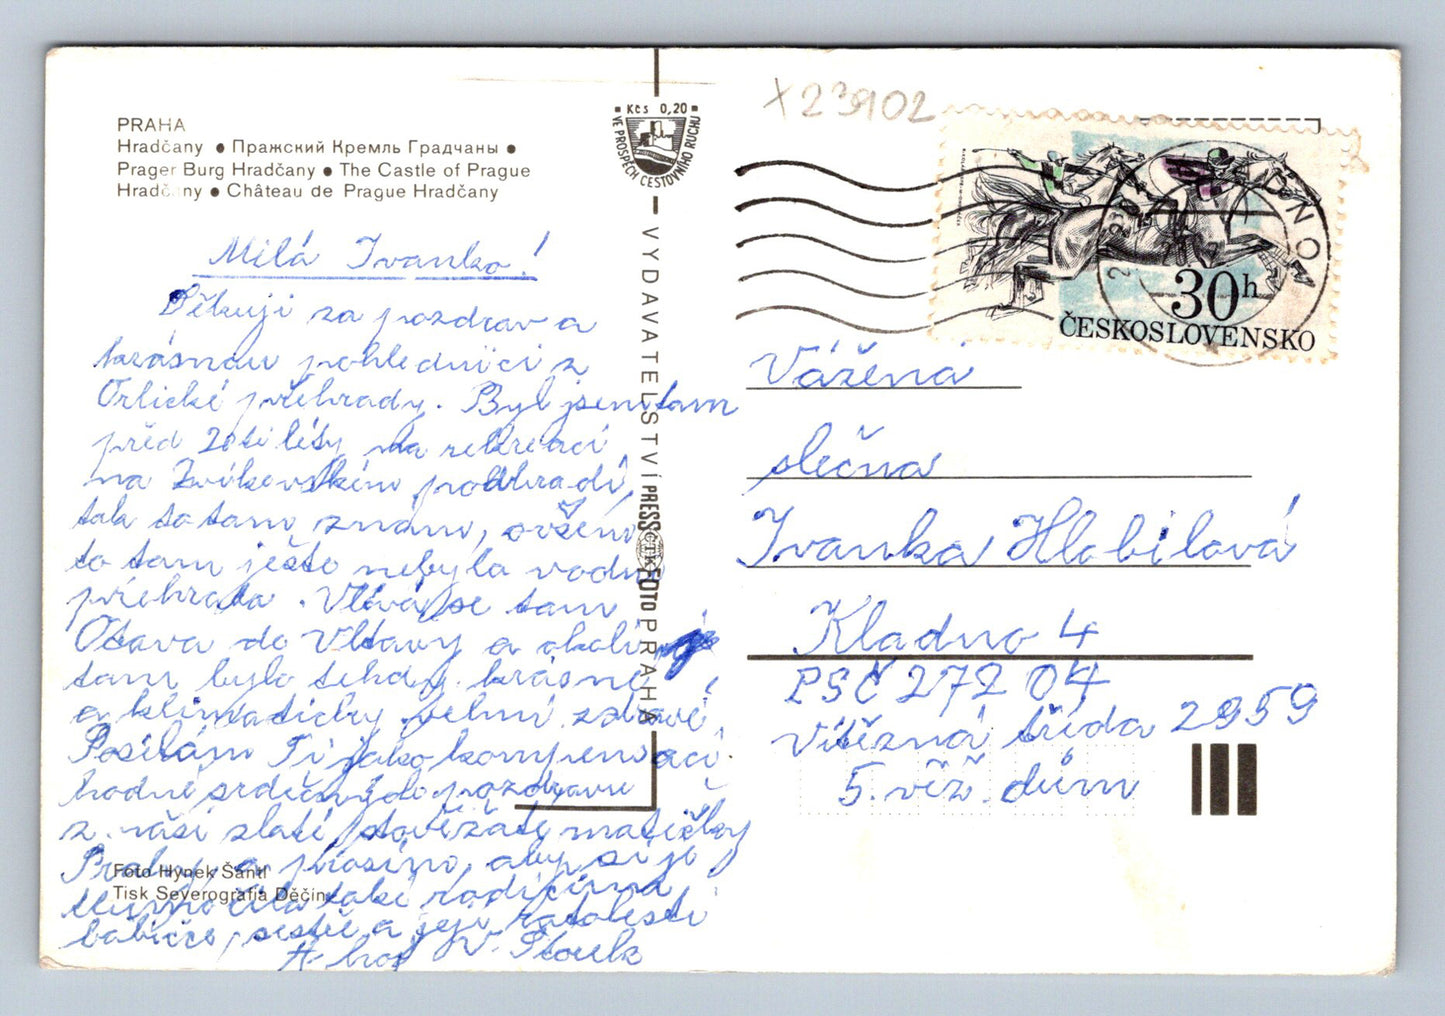 PRAHA
Hradčany ● Пражский Кремль Градчаны ●
Prager Burg Hradčany ● The Castle of Prague
Hradčany ● Château de Prague Hradčany
Milá Ivanko!
Děkuji za pozdrav a
krásnou pohlednici z
Orlické přehrady. Byl jsem tam
před 20ti léty na rekreaci
na Zvíkovském podhradí,
tak to tam znám, ovšem
to tam ještě nebyla vodní
přehrada. Vlévá se tam
Otava do Vltavy a okolí
tam bylo tehdy krásné
a klimaticky velmi zdravé.
Posílám Ti jako kompensaci
hodně srdečných pozdravů
z naší zlaté stověžaté matičky
Prahy a prosím, aby si je
také rodičům a
babičce, sestře a její ratolesti
A hoj V.
Foto Hynek Šantl
Tisk Severografia Děčín
Kčs 0,20
VE PROSPĚCH CESTOVNÍHO RUCHU
VYDAVATELSTVÍ PRESSFOTO PRAHA
ČTK
X23902
30h
ČESKOSLOVENSKO
Vážená
slečna
Ivanka Hlobilová
Kladno 4
PSČ 272 04
Vítězná třída 2959
5. věž. dům